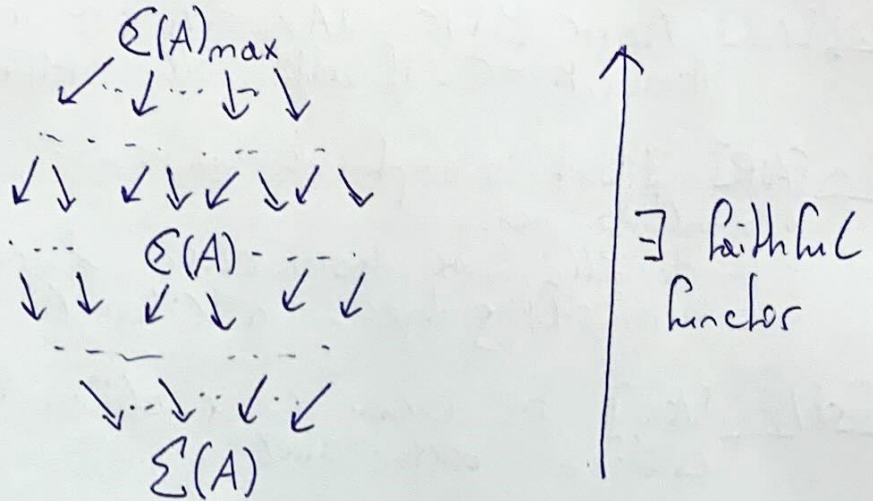 Σ(A)max
Σ(A)
Σ(A)
∃ faithful
functor